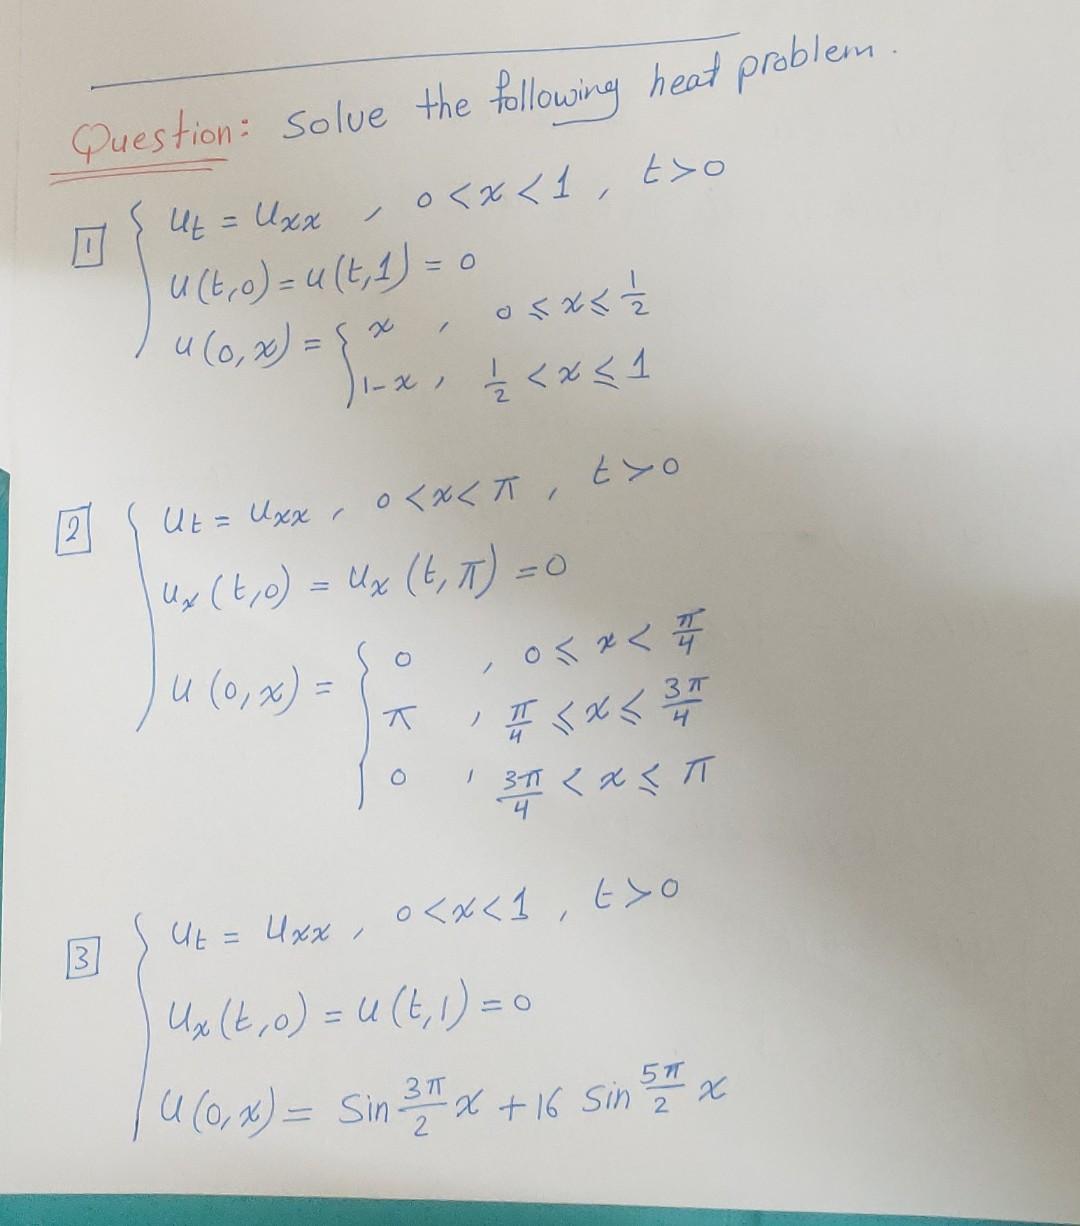 Question: Solve the following heat problem.
1 { u_t = u_xx , 0 < x < 1 , t > 0
u(t,0) = u(t,1) = 0
u(0,x) = { x , 0 ≤ x ≤ 1/2
1-x , 1/2 < x ≤ 1
2 { u_t = u_xx , 0 < x < π , t > 0
u_x(t,0) = u_x(t,π) = 0
u(0,x) = { 0 , 0 ≤ x < π/4
π , π/4 ≤ x ≤ 3π/4
0 , 3π/4 < x ≤ π
3 { u_t = u_xx , 0 < x < 1 , t > 0
u_x(t,0) = u(t,1) = 0
u(0,x) = Sin 3π/2 x + 16 Sin 5π/2 x